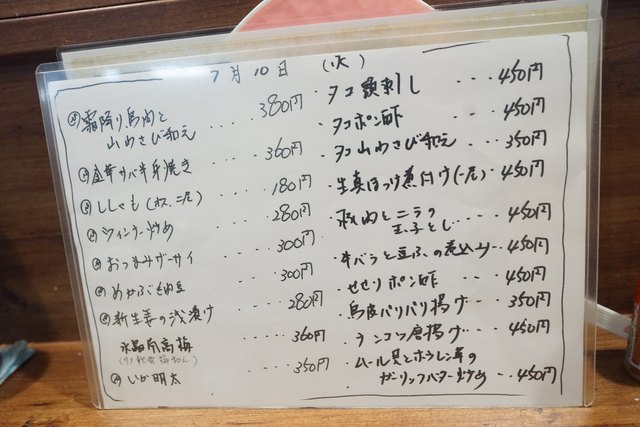 7月10日 (火)
霜降り馬肉と
山わさび和え ... 380円
金華サバ半身焼き ... 360円
ししゃも(オス、二尾) ... 180円
ウィンナー炒め ... 280円
おつまみザーサイ ... 300円
めかぶ納豆 ... 300円
新生姜の浅漬け ... 280円
水晶 ... 360円
いか明太 ... 350円
タコ頭刺し ... 450円
タコポン酢 ... 450円
タコ山わさび和え ... 350円
生真ほっけ煮付け(一尾) ... 450円
豚肉とニラの
玉子とじ ... 450円
牛バラと豆ふの煮込み ... 450円
せせりポン酢 ... 450円
鳥皮パリパリ揚げ ... 350円
ナンコツ唐揚げ ... 450円
ムール貝とホウレン草の
ガーリックバター炒め ... 450円